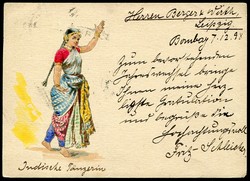 Herren Berger & Wirth
Leipzig
Bombay 7.12.98
Zum bevorstehenden
Jahreswechsel bringe
Ihnen meine herz-
lichste Gratulation
und begrüße Sie
Hochachtungsvoll
Fritz Schleicher
Indische Tänzerin